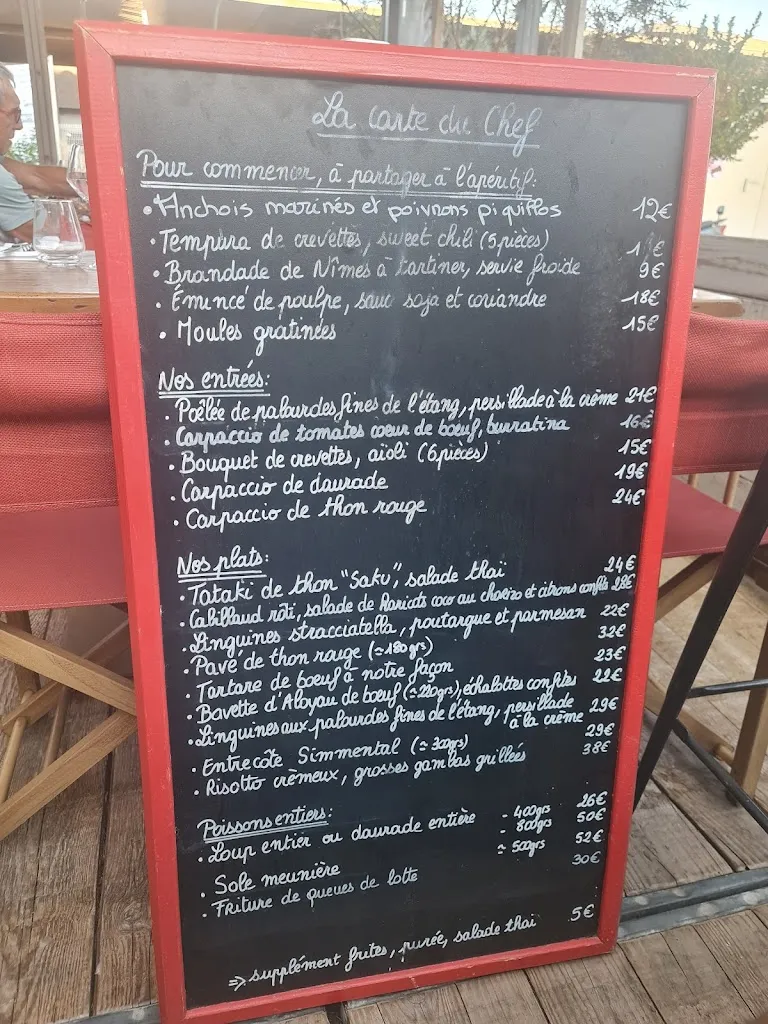 La carte du Chef
Pour commencer, à partager à l'apéritif:
• Anchois marinés et poivrons piquillos 12€
• Tempura de crevettes, sweet chili (5 pièces) €
• Brandade de Nîmes à tartiner, servie froide 9€
• Émincé de poulpe, sauc soja et coriandre 18€
• Moules gratinées 15€
Nos entrées:
• Poêlée de palourdes fines de l'étang, persillade à la crème 21€
• Carpaccio de tomates coeur de boeuf, burratina 16€
• Bouquet de crevettes, aïoli (6 pièces) 15€
• Carpaccio de daurade 19€
• Carpaccio de thon rouge 24€
Nos plats:
• Tataki de thon "Saku", salade thaï 24€
• Cabillaud rôti, salade de haricots coco au chorizo et citrons confits 28€
• Linguines stracciatella, poutargue et parmesan 22€
• Pavé de thon rouge (≃180grs) 32€
• Tartare de boeuf à notre façon 23€
• Bavette d'Aloyau de boeuf (≃220grs), échalottes confites 22€
• Linguines aux palourdes fines de l'étang, persillade 29€
à la crème
• Entrecôte Simmental (≃300grs) 29€
• Risotto crémeux, grosses gambas grillées 38€
Poissons entiers:
• Loup entier ou daurade entière ≃ 400grs 26€
≃ 800grs 50€
• Sole meunière ≃ 500grs 52€
• Friture de queues de lotte 30€
=> supplément frites, purée, salade thaï 5€